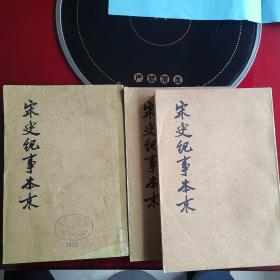 严禁覆盖
宋史纪事本末
宋史纪事本末
宋史纪事本末